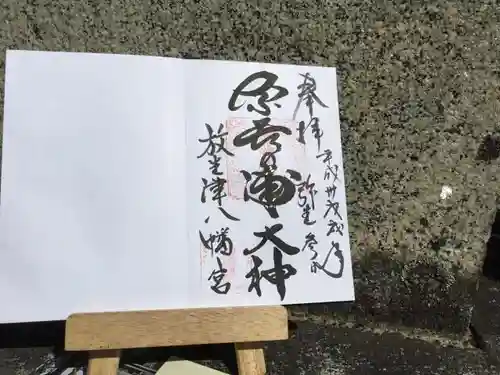 奉拝
平成卅戊戌年
弥生参日
奈呉の浦大神
放生津八幡宮